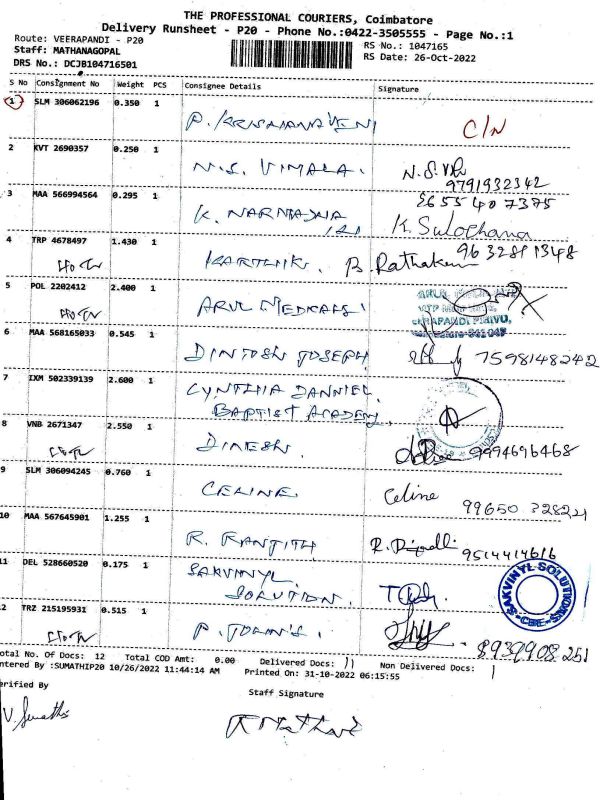 THE PROFESSIONAL COURIERS, Coimbatore
Delivery Runsheet - P20 - Phone No.:0422-3505555 - Page No.:1
Route: VEERAPANDI - P20
RS No.: 1047165
Staff: MATHANAGOPAL
RS Date: 26-Oct-2022
DRS No.: DCJB104716501
S No Consignment No Weight PCS Consignee Details Signature
1 SLM 306062196 0.350 1
P. KRISHNAVENI C/N
2 KVT 2690357 0.250 1
N.S. VIMALA. N.S.
9791932342
3 MAA 566994564 0.295 1
8655407375
K. NARMADHA K. Sulochana
4 TRP 4678497 1.430 1
9632811348
KARTHIK. B. Rathakum
5 POL 2202412 2.400 1
ARUL MEDICALS
6 MAA 568165033 0.545 1
DINTOSH JOSEPH 7598148242
7 IXM 502339139 2.600 1
CYNTHIA DANNIEL,
BAPTIST ACADEMY,
8 VNB 2671347 2.550 1
DINESH. 9994696468
9 SLM 306094245 0.760 1
CELINE Celine
99650 328221
10 MAA 567645901 1.255 1
R. RANJITH R.
9514414616
11 DEL 528660520 0.175 1
SAKVINYL
SOLUTION.
SAKVINYL SOLUTIONS
CBE
12 TRZ 215195931 0.515 1
P. 8939908251
Total No. Of Docs: 12 Total COD Amt: 0.00 Delivered Docs: 11 Non Delivered Docs: 1
Entered By :SUMATHIP20 10/26/2022 11:44:14 AM Printed On: 31-10-2022 06:15:55
Verified By Staff Signature
V. Sumathi